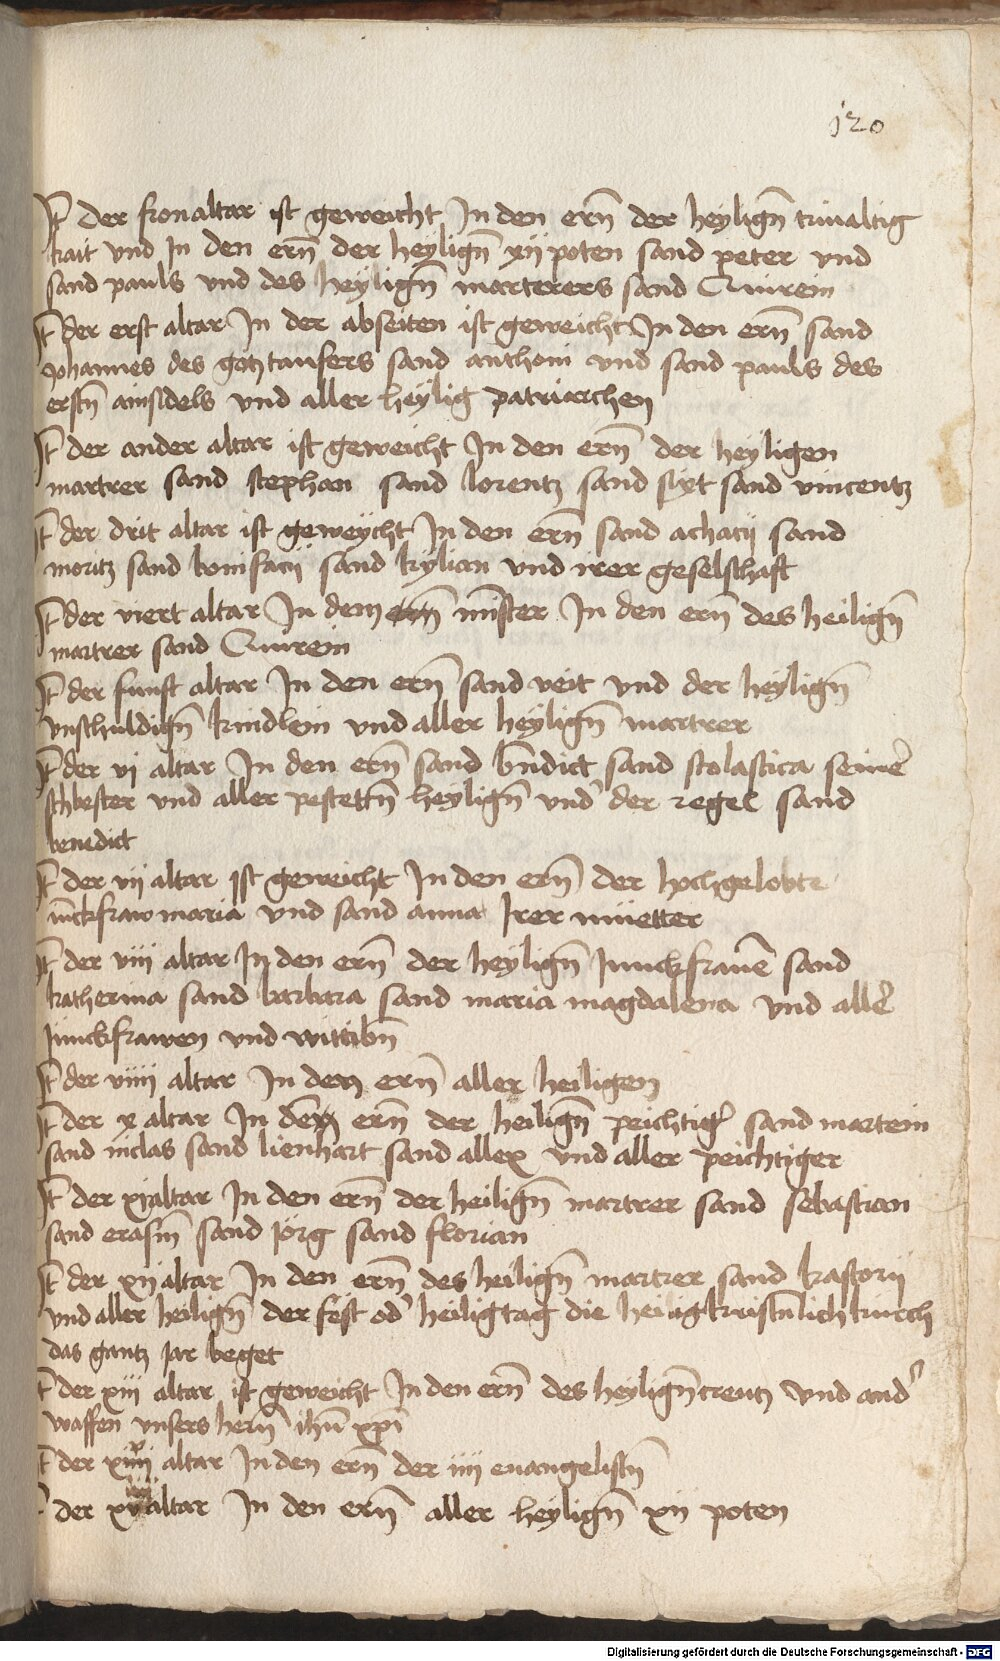 120
It der fronaltar ist geweicht In den ern̄ der heylign̄ trinaltig
kait vnd In den ern̄ der heylign̄ xij poten sand peter vnd
sand pauls vnd des heylign̄ marterers sand Quirein
It der erst altar In der abseiten ist geweicht In den ern̄ sand
Johannes des gotztaufers sand anthoni vnd sand pauls des
erstn̄ ainsidels vnd aller heylig patriarchen
It der ander altar ist geweicht In den ern̄ der heyligen
martrer sand stephan sand lorentz sand sixt sand vincentz
It der drit altar ist geweycht In den ern̄ sand achacij sand
moritz sand bonifacij sand kylian vnd irer geselschaft
It der viert altar In dem ern̄ mūster In den ern̄ des heilign̄
martrer sand Quirein
It der funft altar In den ern̄ sand veit vnd der heylign̄
vnschuldign̄ kindlein vnd aller heylign̄ martrer
It der vj altar In den ern̄ sand bn̄dict sand scolastica seine᷑
schbester vnd aller pestettn̄ heylign̄ vnd der regel sand
benedict
It der vij altar ist geweicht In den ern̄ der hochgelobte
iūckfraw maria vnd sand anna Irer muetter
It der viij altar In den ern̄ der heylign̄ Junckfrauē sand
katherina sand barbara sand maria magdalena vnd alle᷑
Junckfrawen vnd wittibn̄
It der viiij altar In den ern̄ aller heiligen
It der x altar In den ern̄ der heilign̄ peichtig᷑ sand martein
sand niclas sand lienhart sand allex vnd aller peichtiger
It der xj altar In den ern̄ der heilign̄ martrer sand sebastian
sand erasm̄ sand Jorg sand florian
It der xij altar In den ern̄ des heilign̄ martrer sand kastorij
vnd aller heilign̄ der fest od᷑ heiligtag die heilig kristn̄lich kirch
das gantz Jar beget
It der xiij altar ist geweicht In den ern̄ des heylign̄ creutz vnd and᷑
waffen vnsers hern̄ ihū xp̄i
It der altar In den ern̄ der iiij euangelistn̄
It der altar In den ern̄ aller heylign̄ xij poten
Digitalisierung gefördert durch die Deutsche Forschungsgemeinschaft - DFG